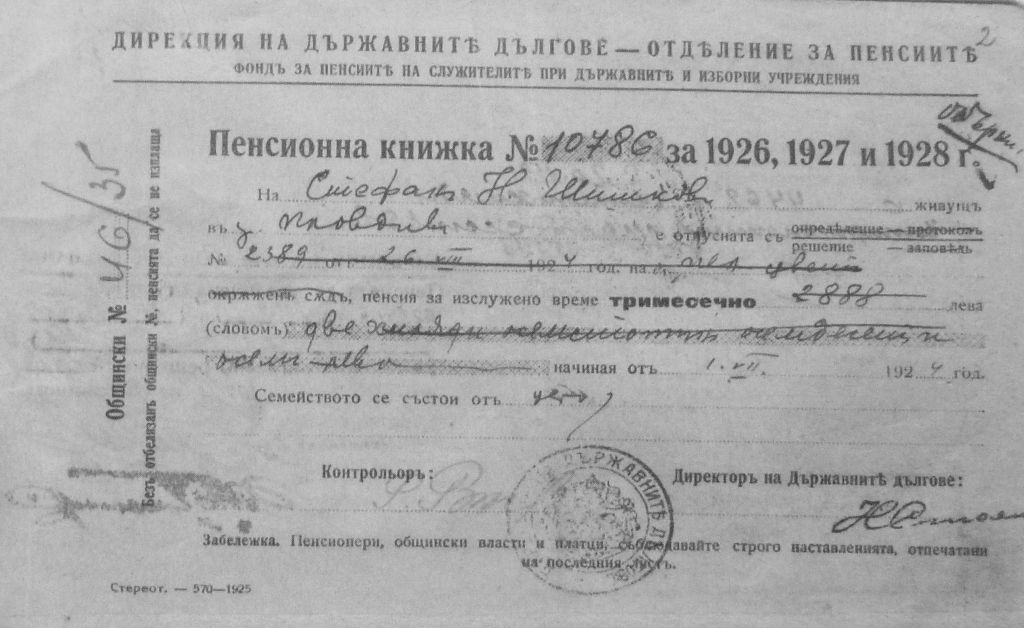 2
ДИРЕКЦИЯ НА ДЪРЖАВНИТѢ ДЪЛГОВЕ — ОТДѢЛЕНИЕ ЗА ПЕНСИИТѢ
ФОНДЪ ЗА ПЕНСИИТѢ НА СЛУЖИТЕЛИТѢ ПРИ ДЪРЖАВНИТѢ И ИЗБОРНИ УЧРЕЖДЕНИЯ
Пенсионна книжка № 10786 за 1926, 1927 и 1928 г.
На Стефанъ Н. Шишковъ живущъ
въ гр. Пловдивъ е отпусната съ опредѣление — протоколъ
решение — заповѣдь
№ 2389 отъ 26. VII 1924 год. на
окръженъ сѫдъ, пенсия за изслужено време тримесечно 2888 лева
(словомъ) две хиляди осемстотинъ осемдесеть и
осемь лева начиная отъ 1. VII. 1924 год.
Семейството се състои отъ
Общински № 46/35
Безъ отбелязанъ общински №, пенсията да се не изплаща
Контрольоръ:
Директоръ на Държавнитѣ дългове:
ДЪРЖАВНИТѢ
Забележка. Пенсионери, общински власти и платци, съблюдавайте строго наставленията, отпечатани
на последния листъ.
Стереот. — 570—1925